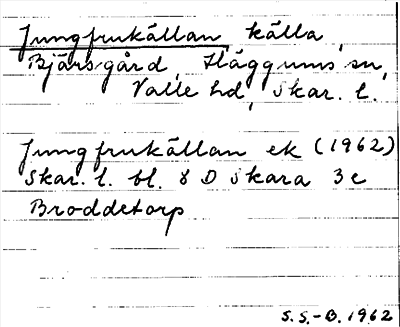 Jungfrukällan, källa,
Bjärsgård, Häggums sn,
Valle hd, Skar. l.
Jungfrukällan ek (1962)
Skar. l. bl. 8 D Skara 3e
Broddetorp
S.S.-B. 1962